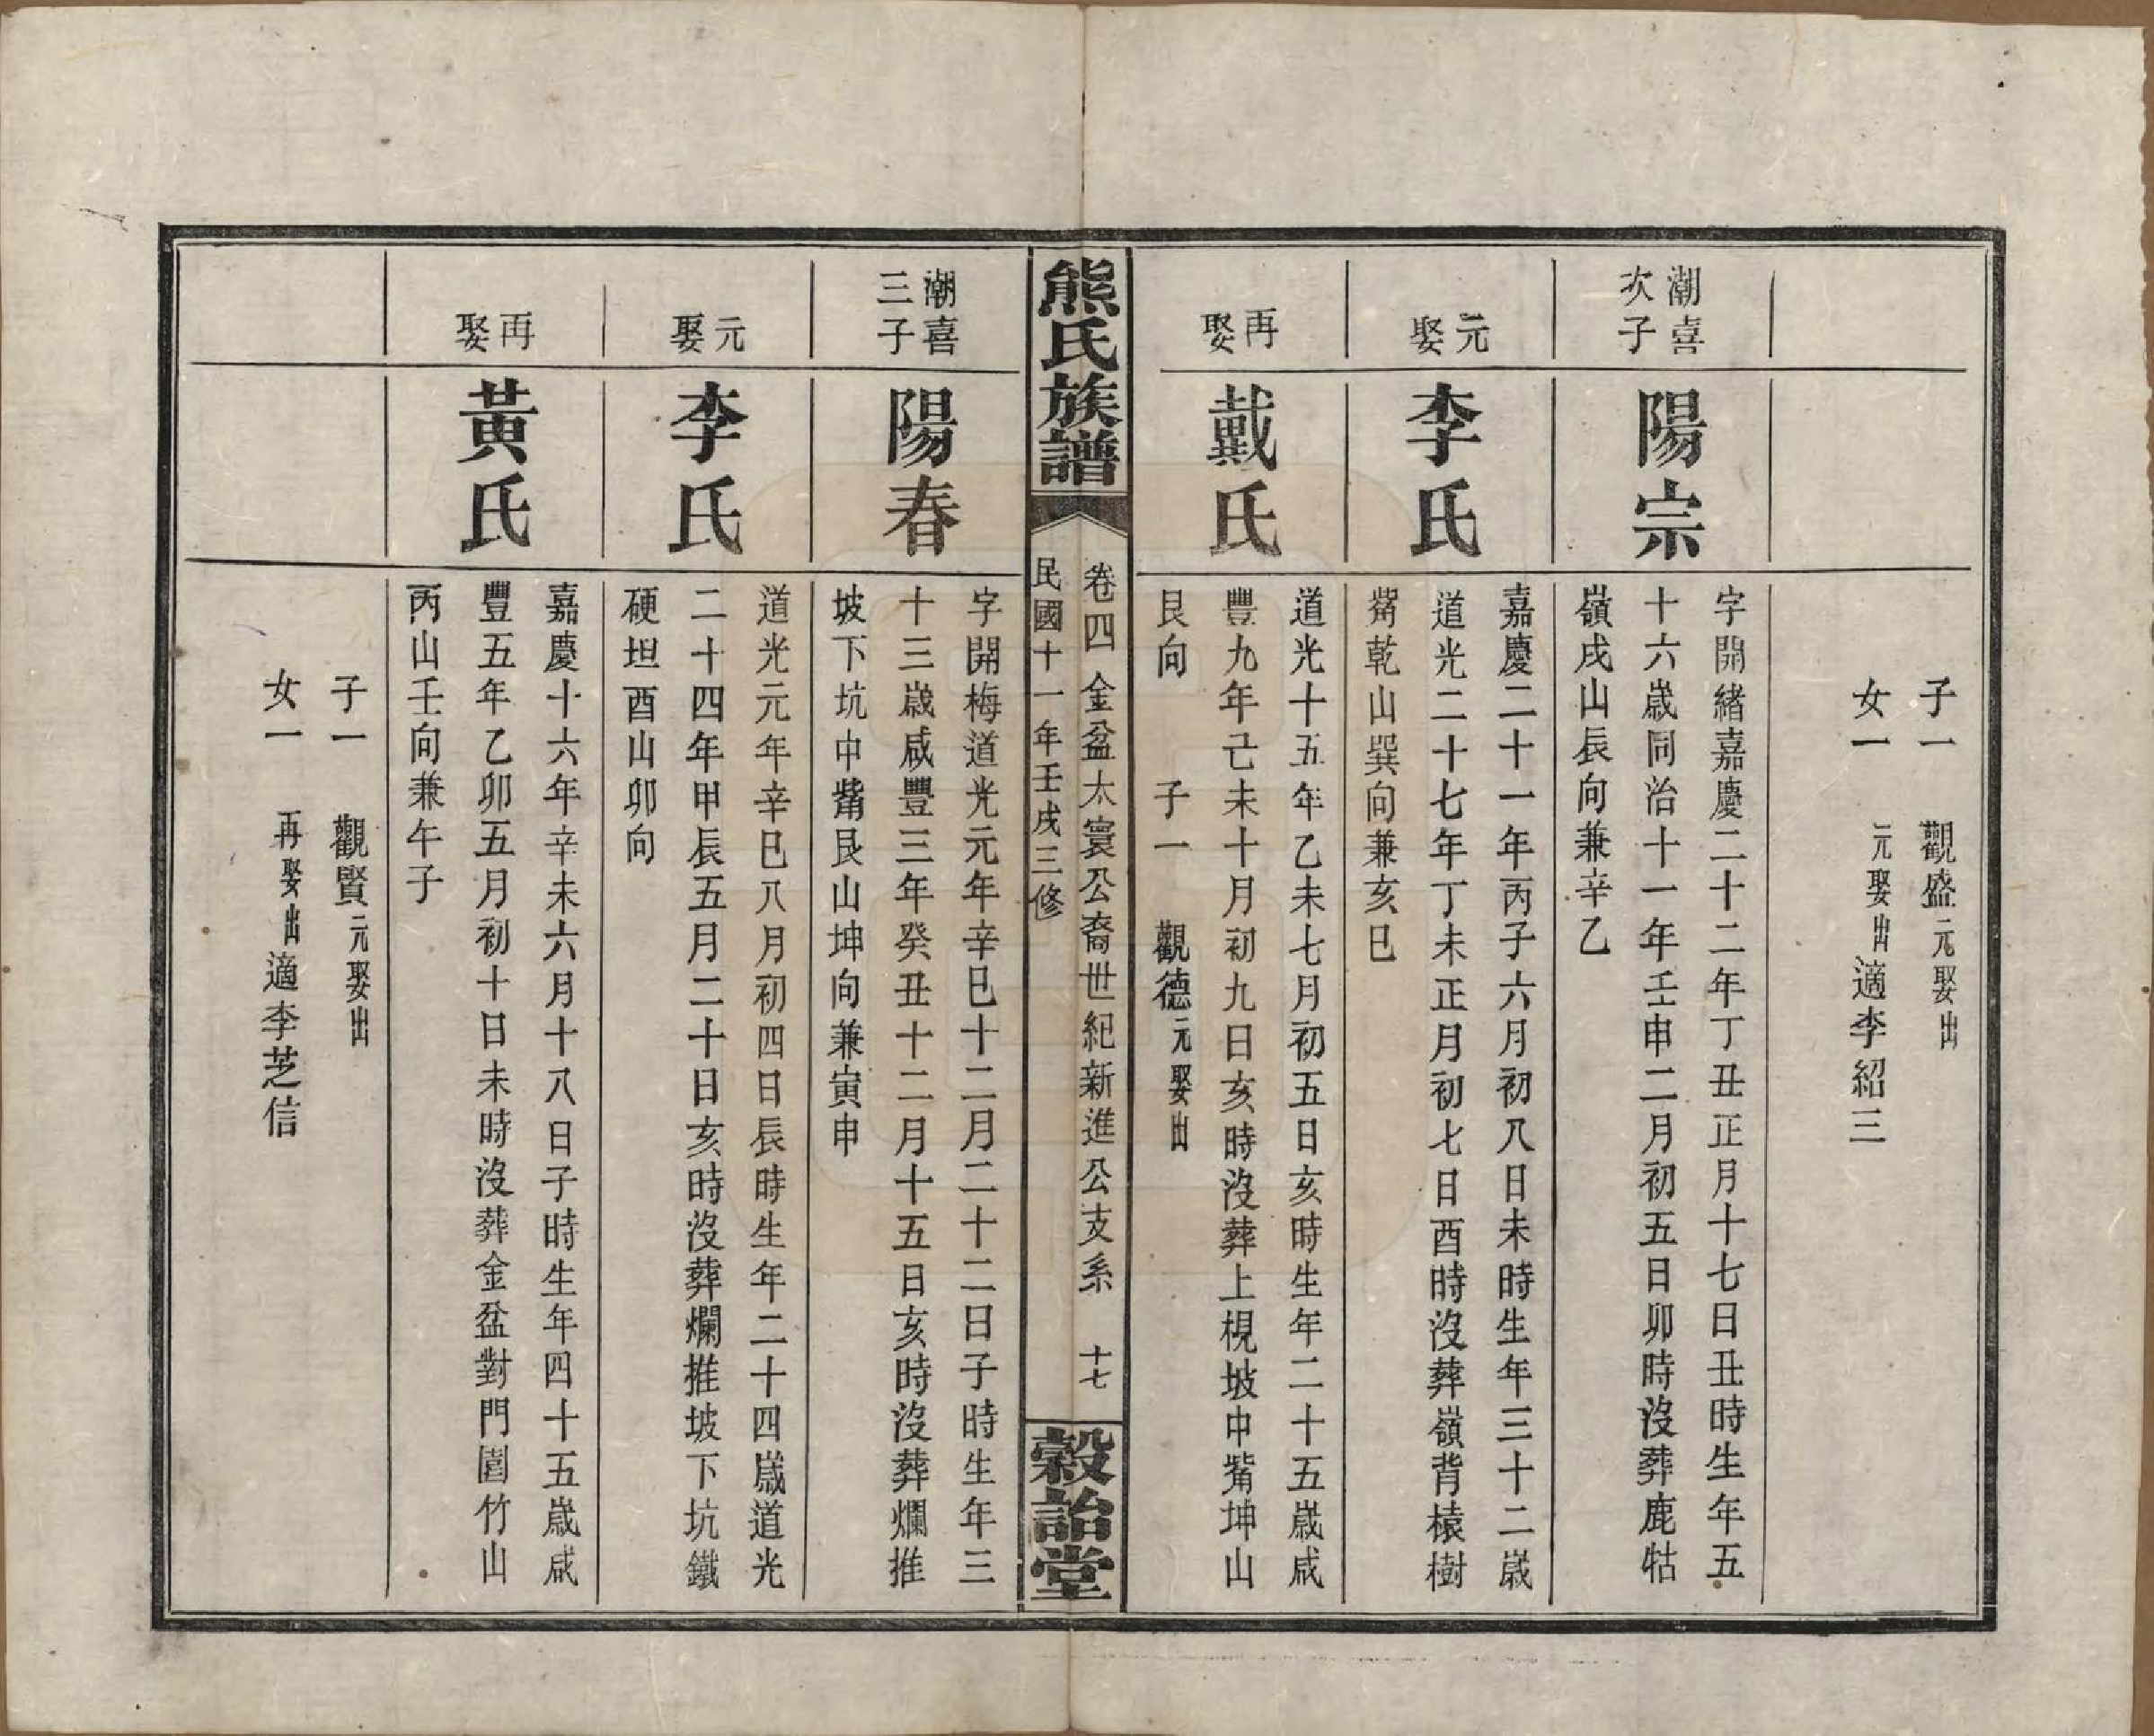 子一　觀盛元娶出
女一　元娶出適李紹三
潮喜
次子
陽宗
字開緒嘉慶二十二年丁丑正月十七日丑時生年五
十六歲同治十一年壬申二月初五日卯時沒葬鹿牯
嶺戌山辰向兼辛乙
元
娶
李氏
嘉慶二十一年丙子六月初八日未時生年三十二歲
道光二十七年丁未正月初七日酉時沒葬嶺背榬樹
觜乾山巽向兼亥巳
再
娶
戴氏
道光十五年乙未七月初五日亥時生年二十五歲咸
豐九年己未十月初九日亥時沒葬上梘坡中觜坤山
艮向　　子一　觀德元娶出
熊氏族譜
卷四　金盆太寰公裔世紀新進公支系　十七
民國十一年壬戌三修
穀詒堂
潮喜
三子
陽春
字開梅道光元年辛巳十二月二十二日子時生年三
十三歲咸豐三年癸丑十二月十五日亥時沒葬爛推
坡下坑中觜艮山坤向兼寅申
元
娶
李氏
道光元年辛巳八月初四日辰時生年二十四歲道光
二十四年甲辰五月二十日亥時沒葬爛推坡下坑鐵
硬坦酉山卯向
再
娶
黃氏
嘉慶十六年辛未六月十八日子時生年四十五歲咸
豐五年乙卯五月初十日未時沒葬金盆對門園竹山
丙山壬向兼午子
子一　觀賢元娶出
女一　再娶出適李芝信